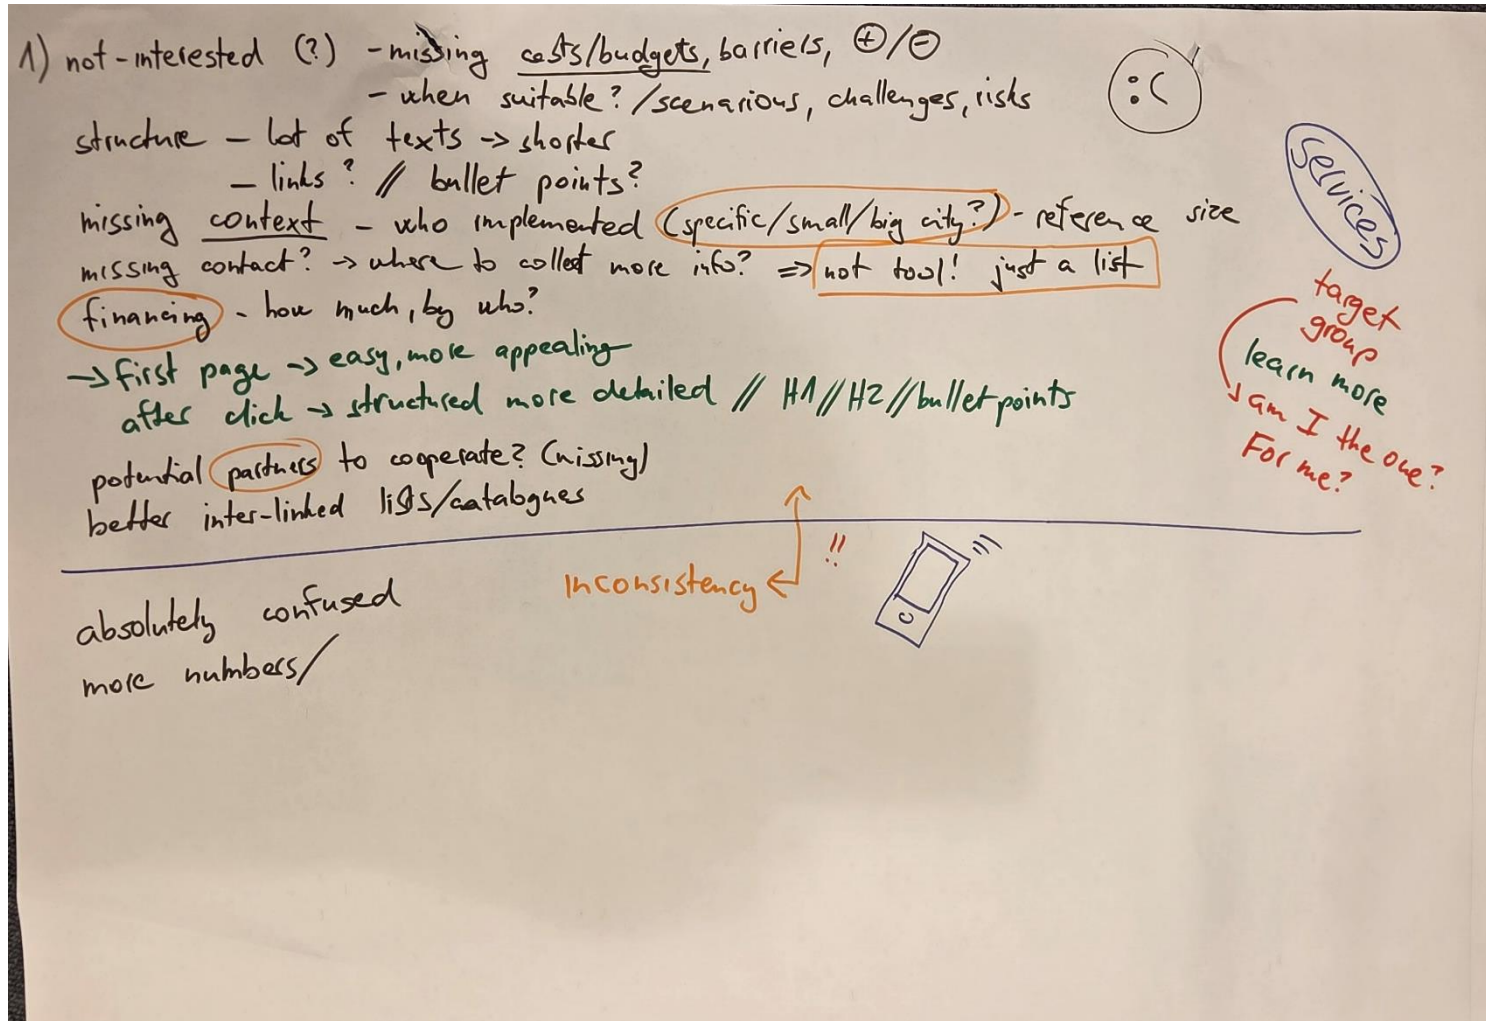 1) not-interested (?) - missing costs/budgets, barriers, ⊕/⊖
- when suitable? /scenarious, challenges, risks
:(
structure - lot of texts → shorter
- links? // bullet points?
missing context - who implemented (specific/small/big city?) - reference size
missing contact? → where to collect more info? ⇒ not tool! just a list
financing - how much, by who?
→ first page → easy, more appealing
after click → structured more detailed // H1 // H2 // bullet points
potential partners to cooperate? (missing)
better inter-linked lists/catalogues
services
target
group
learn more
am I the one?
For me?
inconsistency
!!
absolutely confused
more numbers/